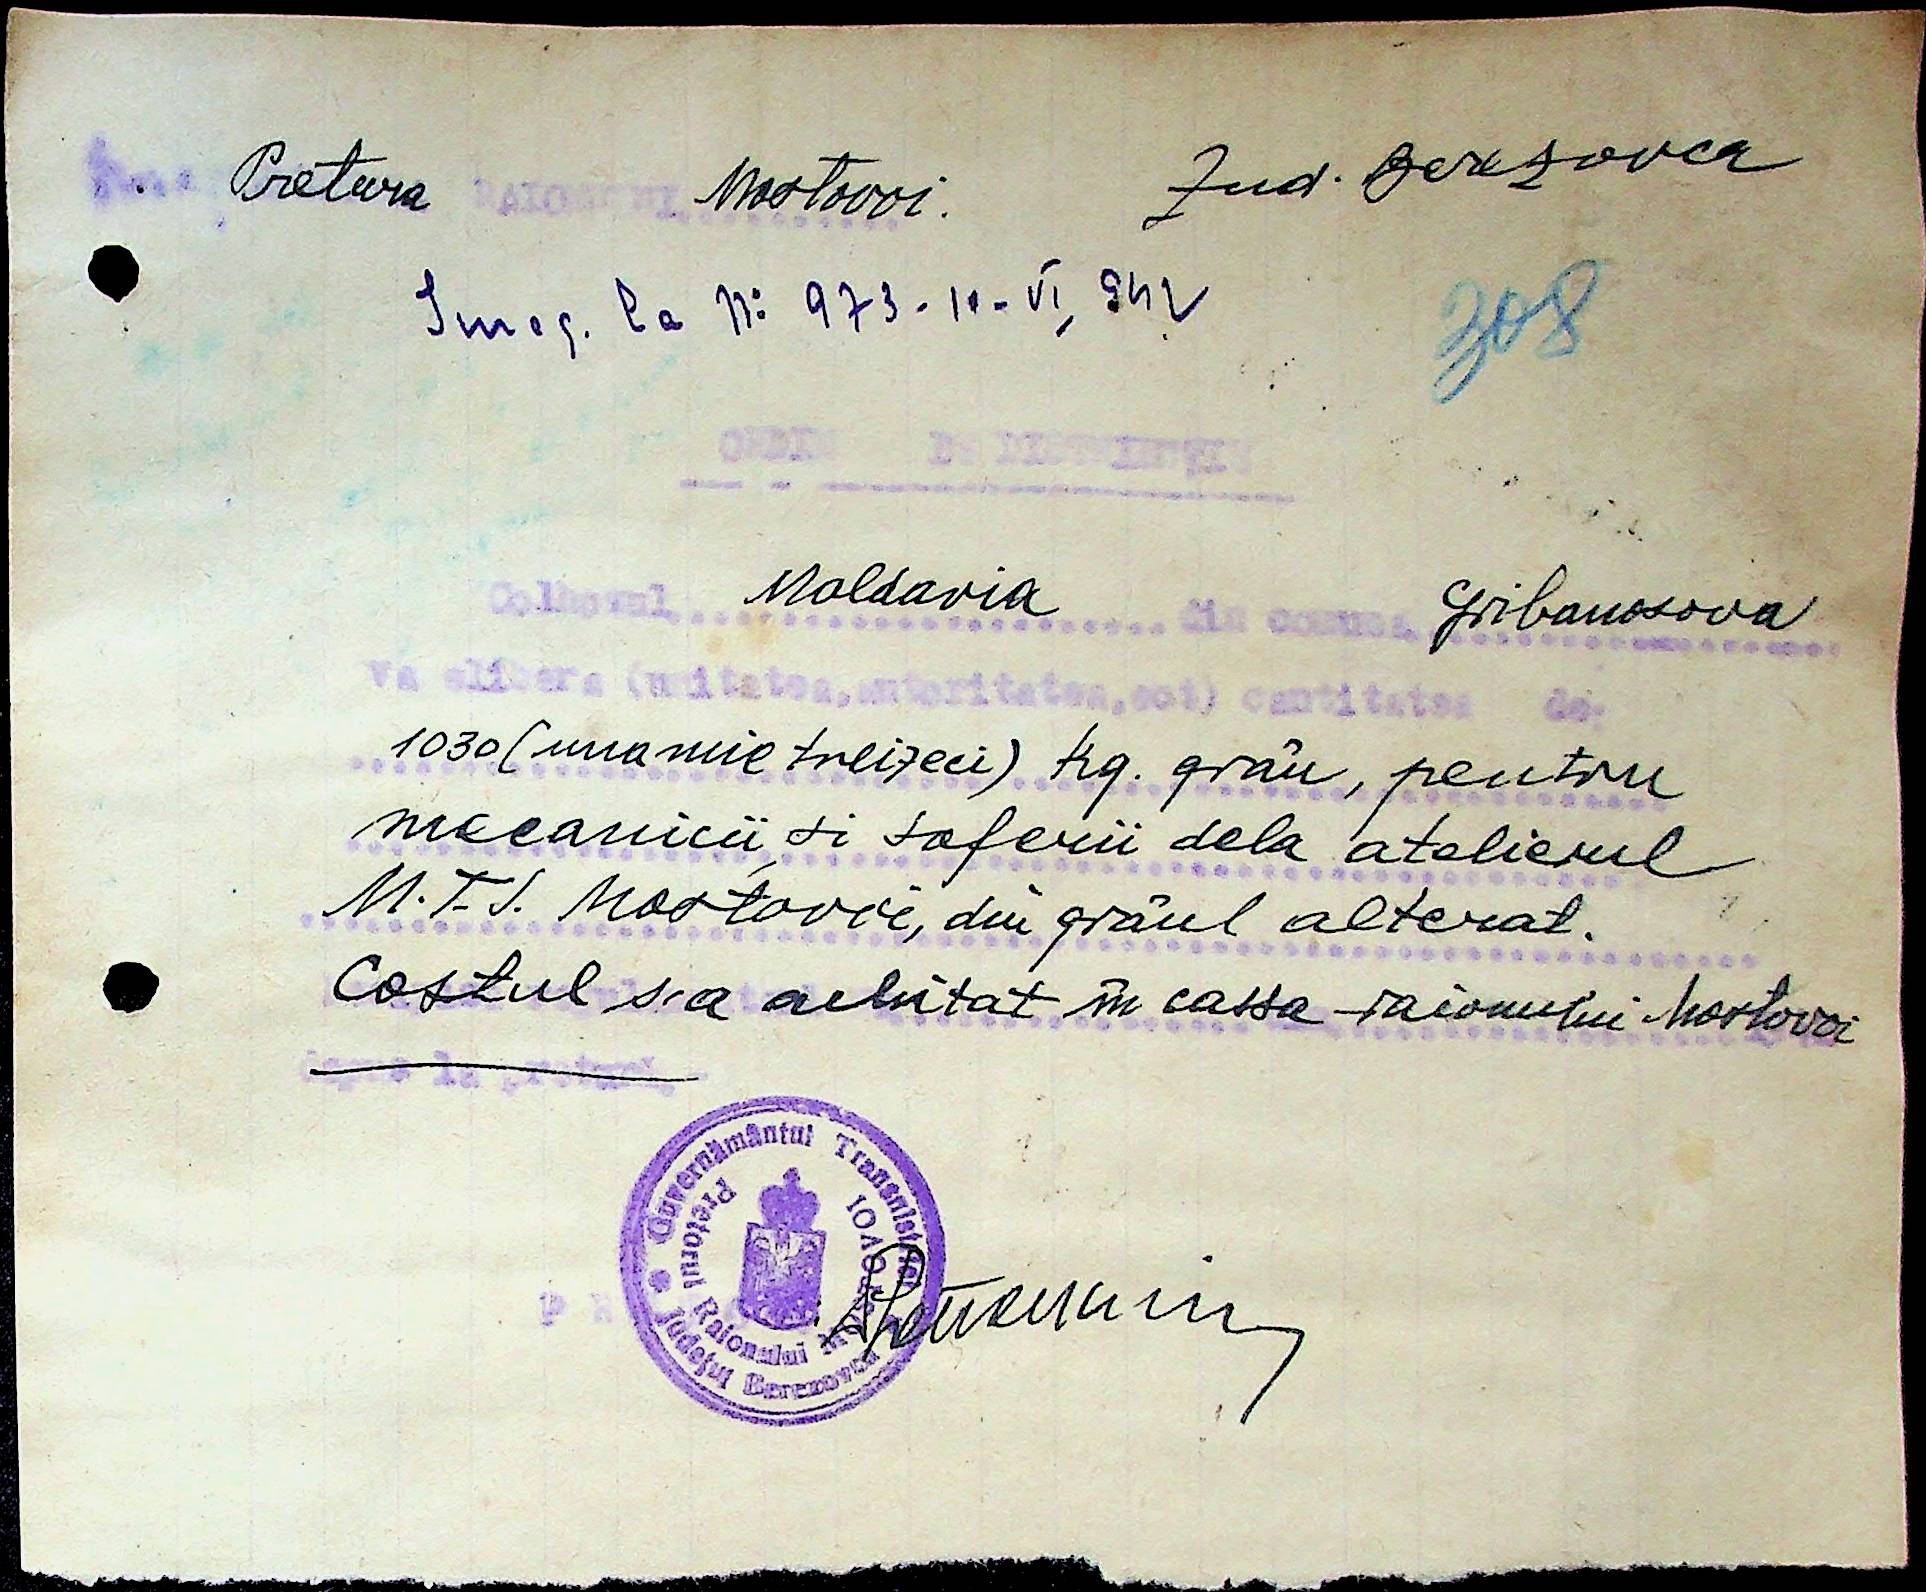 Pretura RAIONUNI Mostovoi. Jud. Berezovca
Inreg. la No 973-10-VI, 942
308
ORDIN DE DISTRIBUȚIE
Colhozul Moldavia din comuna Gribanosova
va elibera (unitatea, autoritatea, ect) cantitatea de
1030 (una mie treizeci) kg. grâu, pentru
mecanicii si soferii dela atelierul
M.T.S. Mostovoi, din grâul alterat.
Costul s-a achitat în cassa raionului Mostovoi
depus la pretură.
Guvernământul Transnistriei
Județul Berezovca
Pretorul Raionului Mostovoi